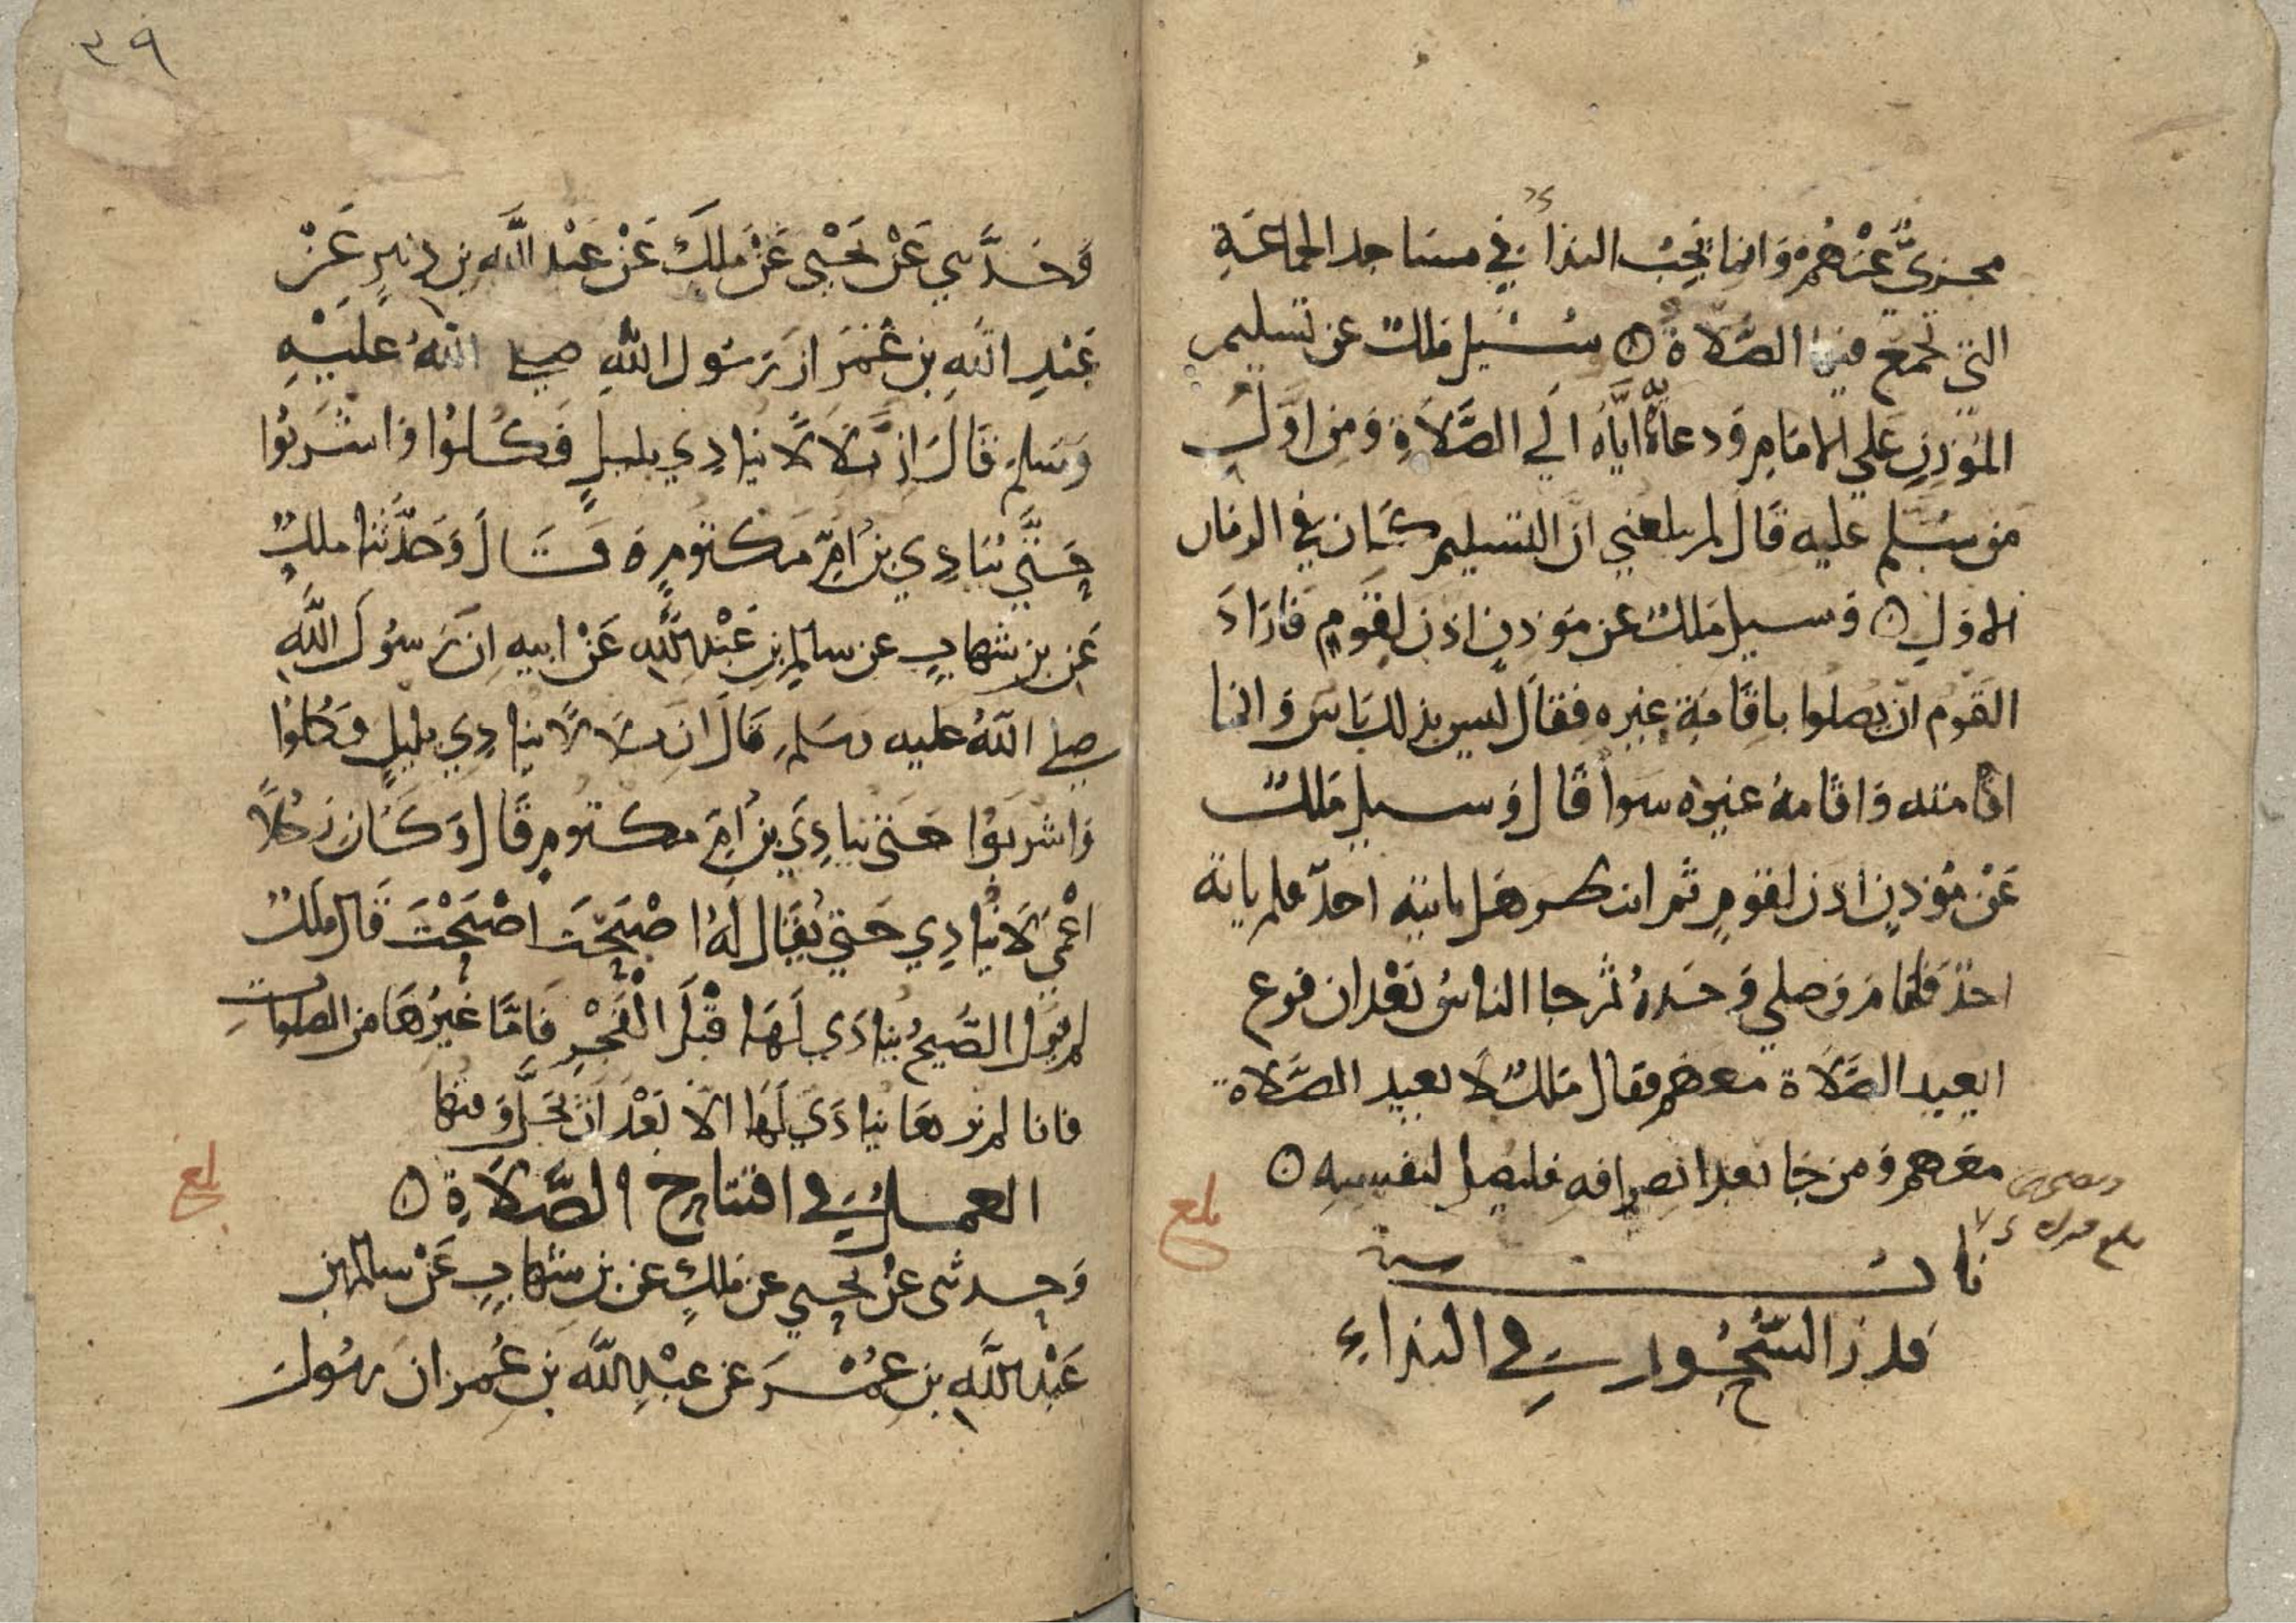 مجزيٌ عنهم وانما يجب النداء في مساجد الجماعة
التي تجمع فيها الصلاة ۞ سئيل ملك عن تسليم
المؤذن علي الامام ودعائه اياه الي الصلاة ومن اول
من سُلم عليه قال لم يبلغني ان التسليم كان في الزمان
الاول ۞ وسيل ملك عن موذن اذن لقوم فاراد
القوم ان يصلوا باقامة غيره فقال ليس بذلك باس وانما
اقامته واقامة غيره سوا قال وسيل ملك
عن موذن اذن لقوم ثم انتظر هل ياتيه احدٌ فلم ياته
احدٌ فاقام وصلي وحده ثم جا الناس بعد ان فرع
ايعيد الصلاة معهم فقال ملكٌ لا يعيد الصلاة
معهم ومن جا بعد انصرافه فليصل لنفسه ۞
بلغ
باب
قدر السُّحُور في النداءِ
٣٩
وحدثني عن يحيي عن ملك عن عبد الله بن دنير عن
عبد الله بن عمر ان رسول الله صلي الله عليه
وسلم قال ان بلالًا ينادي بليل فكلوا واشربوا
حتي ينادي بن ام مكتوم ۵ قال وحدثنا ملك
عن بن شهاب عن سالم بن عبد الله عن ابيه ان رسول الله
صلي الله عليه وسلم قال ان بلالًا ينادي بليل فكلوا
واشربوا حتي ينادي بن ام مكتوم قال وكان رجلًا
اعمي لا ينادي حتي يقال له اصبحت اصبحت قال ملك
لم تزل الصبح ينادي لها قبل الفجر فاما غيرها من الصلوات
فانا لم نرها ينادي لها الا بعد ان يحل وقتها
العمل في افتتاح الصلاة ۞
بلغ
وحدثني عن يحيي عن ملك عن بن شهاب عن سالم بن
عبد الله بن عمر عن عبد الله بن عمر ان رسول